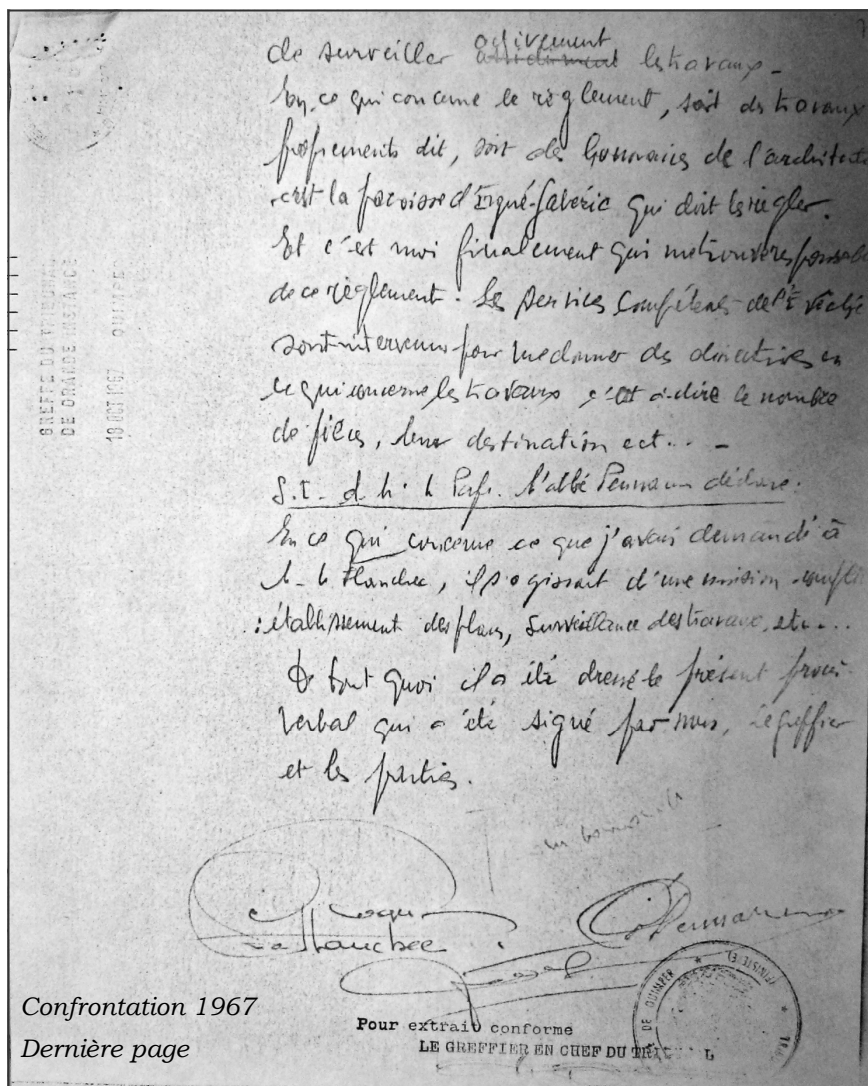 de surveiller activement assidument les travaux -
En ce qui concerne le règlement, soit des travaux
proprements dit, soit des honoraires de l'architecte
c'est la paroisse d'Ergué-Gabéric qui doit les régler.
Et c'est moi finalement qui me trouve responsable
de ce règlement. Les services compétents de l'Evêché
sont intervenus pour me donner des directives en
ce qui concerne les travaux c'est à dire le nombre
de pièces, leur destination ect... -
S.I. d. M. le Prési. l'abbé Pennarun déclare:
En ce qui concerne ce que j'avais demandé à
M. le Flanchec, il s'agissait d'une mission complète
: établissement des plans, surveillance des travaux, etc...
De tout quoi il a été dressé le présent procès-
verbal qui a été signé par nous, le greffier
et les parties.
Le Flanchec
Pennarun
GREFFE DU TRIBUNAL
DE GRANDE INSTANCE
18 OCT 1967 QUIMPER
Pour extrait conforme
LE GREFFIER EN CHEF DU TRIBUNAL
DE QUIMPER * (FINISTERE) *
Confrontation 1967
Dernière page